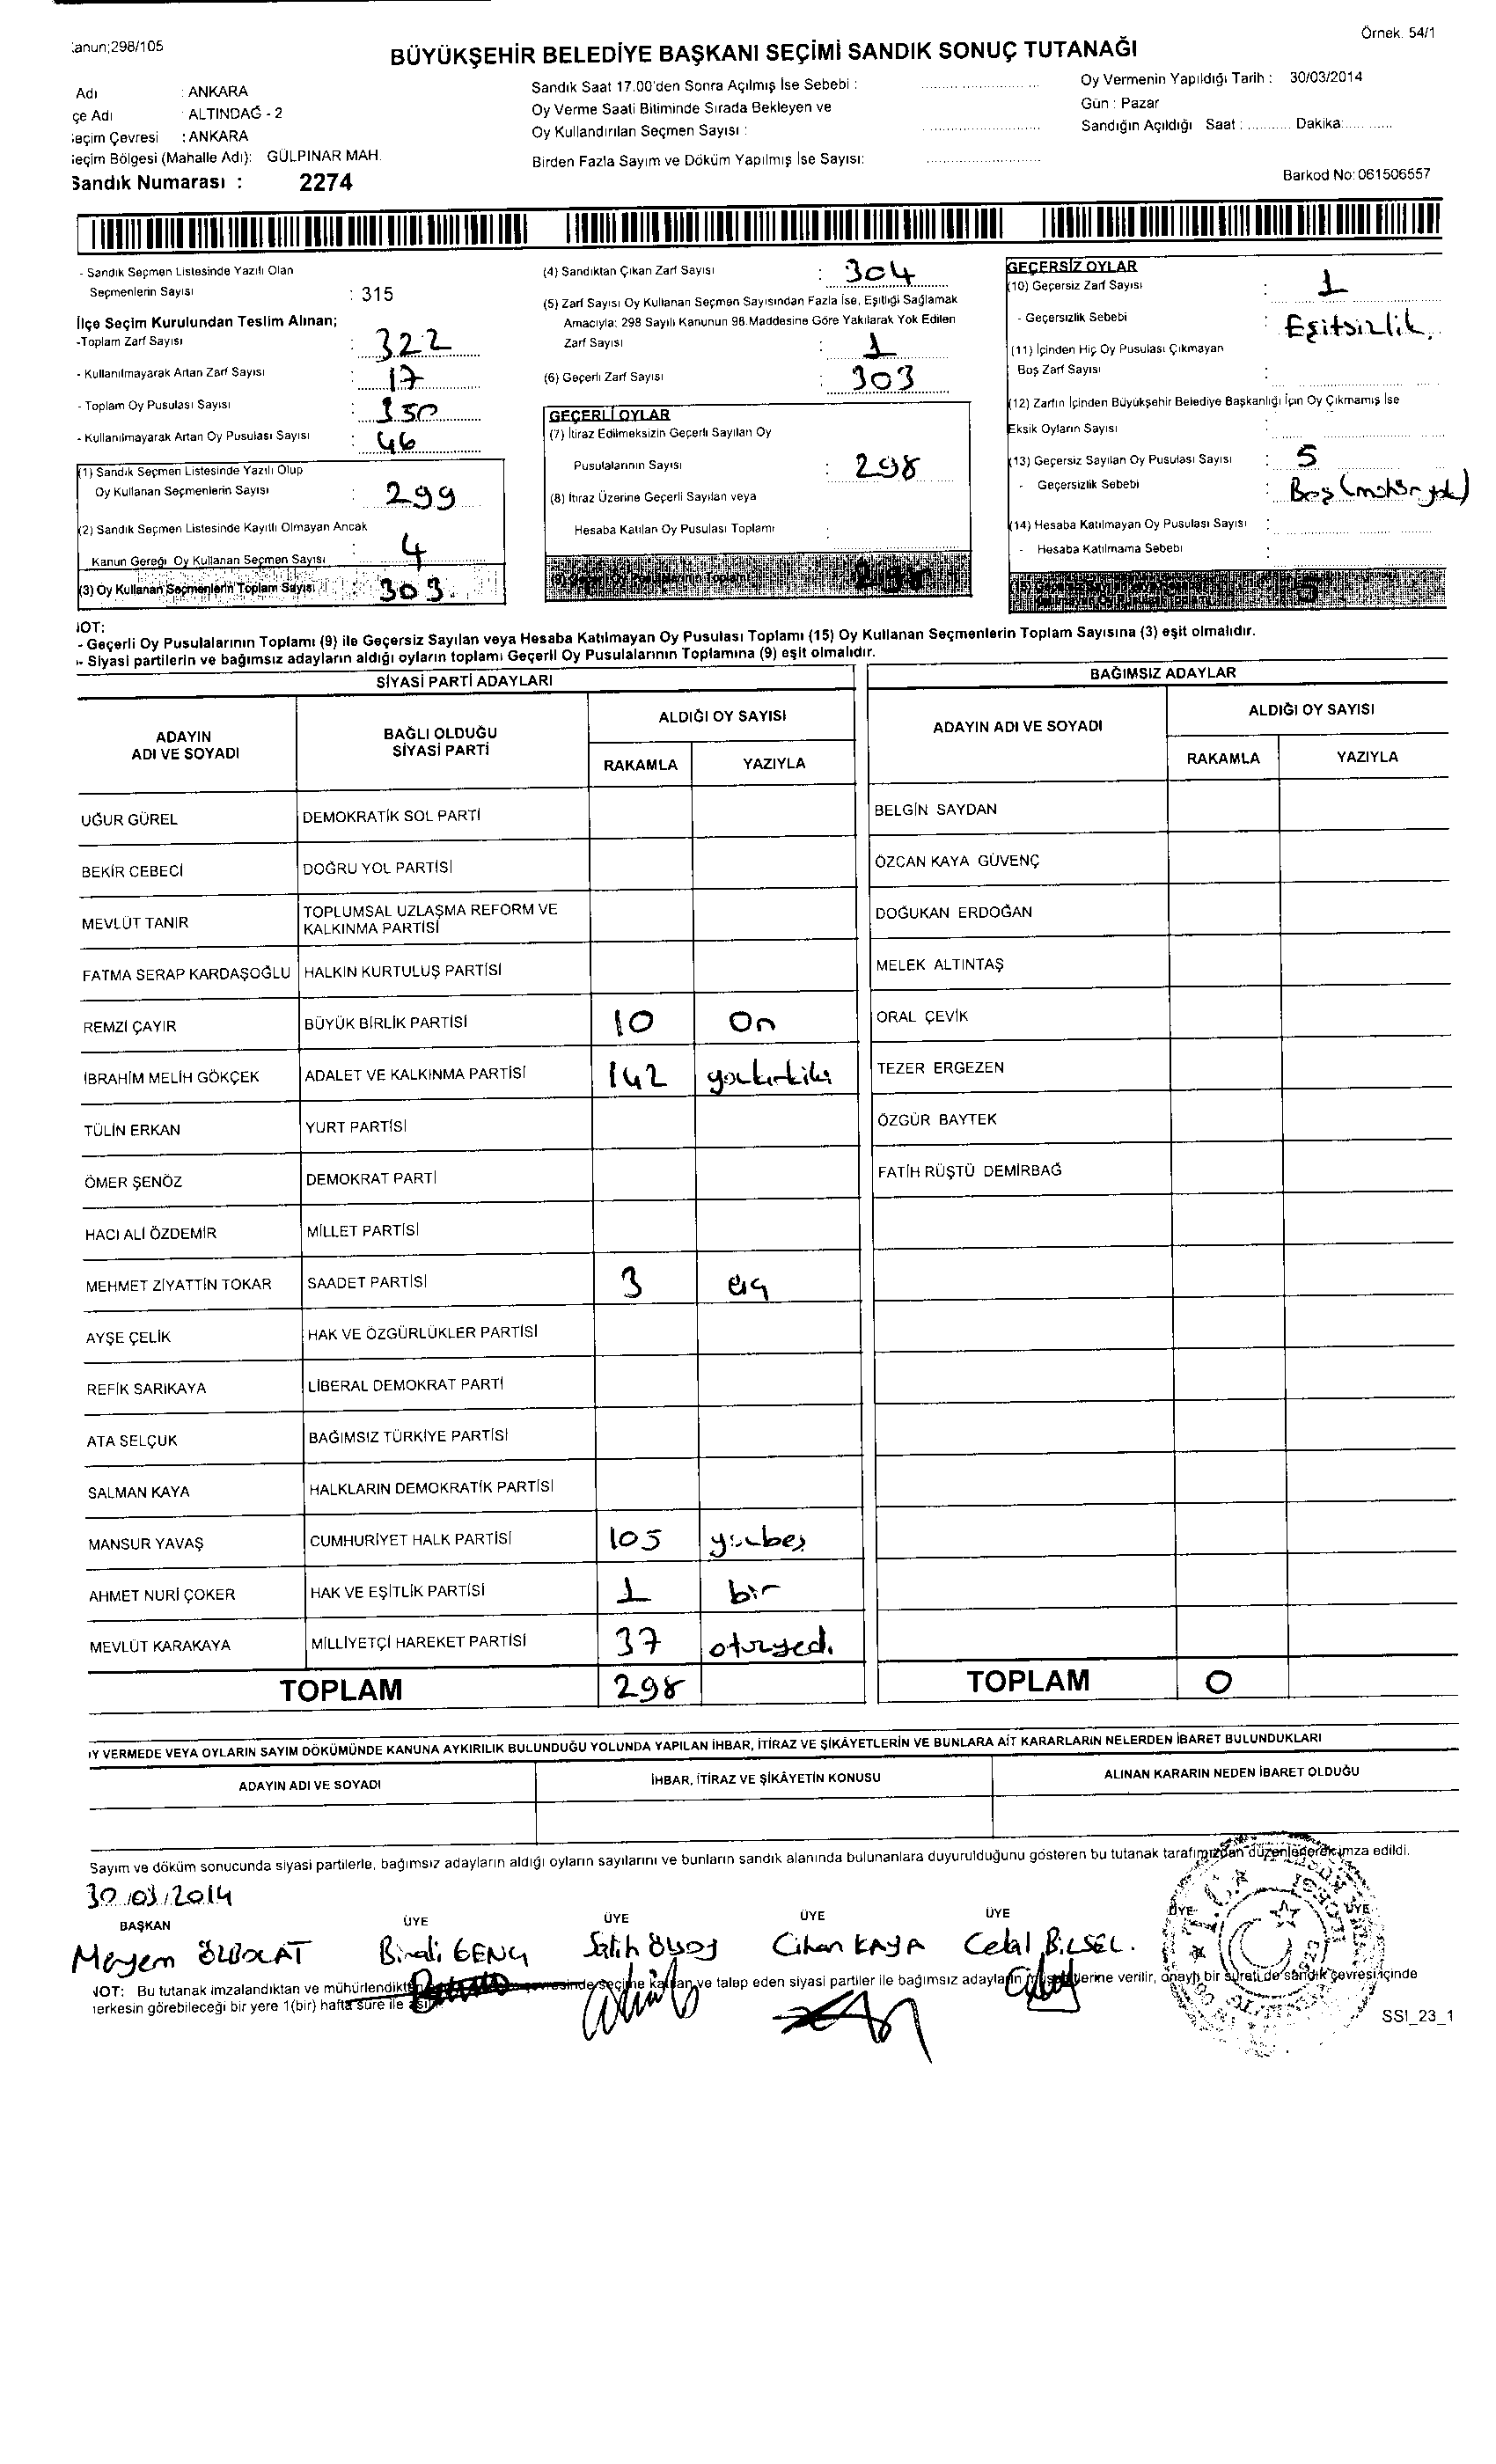 Örnek. 54/1
anun;298/105
BÜYÜKŞEHİR BELEDİYE BAŞKANI SEÇİMİ SANDIK SONUÇ TUTANAĞI
Adı : ANKARA
çe Adı : ALTINDAĞ - 2
eçim Çevresi : ANKARA
eçim Bölgesi (Mahalle Adı): GÜLPINAR MAH.
Sandık Numarası : 2274
Sandık Saat 17.00'den Sonra Açılmış İse Sebebi :
Oy Verme Saati Bitiminde Sırada Bekleyen ve
Oy Kullandırılan Seçmen Sayısı :
Birden Fazla Sayım ve Döküm Yapılmış İse Sayısı:
Oy Vermenin Yapıldığı Tarih : 30/03/2014
Gün : Pazar
Sandığın Açıldığı Saat : ........... Dakika:............
Barkod No: 061506557
- Sandık Seçmen Listesinde Yazılı Olan
Seçmenlerin Sayısı : 315
İlçe Seçim Kurulundan Teslim Alınan;
-Toplam Zarf Sayısı : 322
- Kullanılmayarak Artan Zarf Sayısı : 17
- Toplam Oy Pusulası Sayısı : 350
- Kullanılmayarak Artan Oy Pusulası Sayısı : 46
(1) Sandık Seçmen Listesinde Yazılı Olup
Oy Kullanan Seçmenlerin Sayısı : 299
(2) Sandık Seçmen Listesinde Kayıtlı Olmayan Ancak
Kanun Gereği Oy Kullanan Seçmen Sayısı : 4
(3) Oy Kullanan Seçmenlerin Toplam Sayısı : 303
(4) Sandıktan Çıkan Zarf Sayısı : 304
(5) Zarf Sayısı Oy Kullanan Seçmen Sayısından Fazla İse, Eşitliği Sağlamak
Amacıyla; 298 Sayılı Kanunun 98.Maddesine Göre Yakılarak Yok Edilen
Zarf Sayısı : 1
(6) Geçerli Zarf Sayısı : 303
GEÇERLİ OYLAR
(7) İtiraz Edilmeksizin Geçerli Sayılan Oy
Pusulalarının Sayısı : 298
(8) İtiraz Üzerine Geçerli Sayılan veya
Hesaba Katılan Oy Pusulası Toplamı :
(9) Geçerli Oy Pusulalarının Toplamı 298
GEÇERSİZ OYLAR
(10) Geçersiz Zarf Sayısı : 1
- Geçersizlik Sebebi : Eşitsizlik.
(11) İçinden Hiç Oy Pusulası Çıkmayan
Boş Zarf Sayısı :
(12) Zarfın İçinden Büyükşehir Belediye Başkanlığı İçin Oy Çıkmamış İse
Eksik Oyların Sayısı :
(13) Geçersiz Sayılan Oy Pusulası Sayısı : 5
- Geçersizlik Sebebi : Boş (mühür yok)
(14) Hesaba Katılmayan Oy Pusulası Sayısı :
- Hesaba Katılmama Sebebi :
5
NOT:
- Geçerli Oy Pusulalarının Toplamı (9) ile Geçersiz Sayılan veya Hesaba Katılmayan Oy Pusulası Toplamı (15) Oy Kullanan Seçmenlerin Toplam Sayısına (3) eşit olmalıdır.
- Siyasi partilerin ve bağımsız adayların aldığı oyların toplamı Geçerli Oy Pusulalarının Toplamına (9) eşit olmalıdır.
SİYASİ PARTİ ADAYLARI
ADAYIN ADI VE SOYADI BAĞLI OLDUĞU SİYASİ PARTİ ALDIĞI OY SAYISI
RAKAMLA YAZIYLA
UĞUR GÜREL DEMOKRATİK SOL PARTİ
BEKİR CEBECİ DOĞRU YOL PARTİSİ
MEVLÜT TANIR TOPLUMSAL UZLAŞMA REFORM VE
KALKINMA PARTİSİ
FATMA SERAP KARDAŞOĞLU HALKIN KURTULUŞ PARTİSİ
REMZİ ÇAYIR BÜYÜK BİRLİK PARTİSİ 10 On
İBRAHİM MELİH GÖKÇEK ADALET VE KALKINMA PARTİSİ 142
TÜLİN ERKAN YURT PARTİSİ
ÖMER ŞENÖZ DEMOKRAT PARTİ
HACI ALİ ÖZDEMİR MİLLET PARTİSİ
MEHMET ZİYATTİN TOKAR SAADET PARTİSİ 3 üç
AYŞE ÇELİK HAK VE ÖZGÜRLÜKLER PARTİSİ
REFİK SARIKAYA LİBERAL DEMOKRAT PARTİ
ATA SELÇUK BAĞIMSIZ TÜRKİYE PARTİSİ
SALMAN KAYA HALKLARIN DEMOKRATİK PARTİSİ
MANSUR YAVAŞ CUMHURİYET HALK PARTİSİ 105 yüzbeş
AHMET NURİ ÇOKER HAK VE EŞİTLİK PARTİSİ 1 bir
MEVLÜT KARAKAYA MİLLİYETÇİ HAREKET PARTİSİ 37 otuzyedi
TOPLAM 298
BAĞIMSIZ ADAYLAR
ADAYIN ADI VE SOYADI ALDIĞI OY SAYISI
RAKAMLA YAZIYLA
BELGİN SAYDAN
ÖZCAN KAYA GÜVENÇ
DOĞUKAN ERDOĞAN
MELEK ALTINTAŞ
ORAL ÇEVİK
TEZER ERGEZEN
ÖZGÜR BAYTEK
FATİH RÜŞTÜ DEMİRBAĞ
TOPLAM 0
Y VERMEDE VEYA OYLARIN SAYIM DÖKÜMÜNDE KANUNA AYKIRILIK BULUNDUĞU YOLUNDA YAPILAN İHBAR, İTİRAZ VE ŞİKÂYETLERİN VE BUNLARA AİT KARARLARIN NELERDEN İBARET BULUNDUKLARI
ADAYIN ADI VE SOYADI İHBAR, İTİRAZ VE ŞİKÂYETİN KONUSU ALINAN KARARIN NEDEN İBARET OLDUĞU
Sayım ve döküm sonucunda siyasi partilerle, bağımsız adayların aldığı oyların sayılarını ve bunların sandık alanında bulunanlara duyurulduğunu gösteren bu tutanak tarafımızdan düzenlenerek imza edildi.
30/03/2014
BAŞKAN ÜYE ÜYE ÜYE ÜYE ÜYE ÜYE
Binali GENÇ Salih Cihan KAYA Celal BİLSEL.
NOT: Bu tutanak imzalandıktan ve mühürlendikten seçime katılan ve talep eden siyasi partiler ile bağımsız adayların müşahitlerine verilir, onaylı bir sureti de sandık çevresi içinde
herkesin görebileceği bir yere 1(bir) hafta süre ile asılır.
SSI_23_1